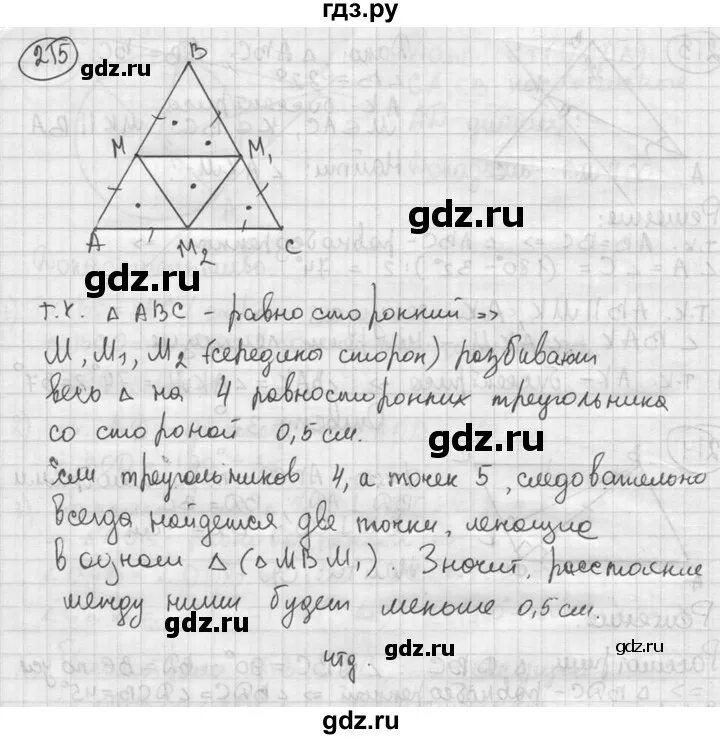 гдз.ру
215
gdz.ru
B
M
M₁
gdz.ru
A
M₂
C
gdz.ru
т.к. △ ABC - равносторонний =>
M, M₁, M₂ (середины сторон) разбивают
весь △ на 4 равносторонних треугольника
со стороной 0,5 см.
gdz.ru
Если треугольников 4, а точек 5, следовательно
всегда найдется две точки, лежащие
в одном △ (△ MBM₁). Значит, расстояние
между ними будет меньше 0,5 см.
gdz.ru
чтд.
gdz.ru
gdz.ru
gdz.ru